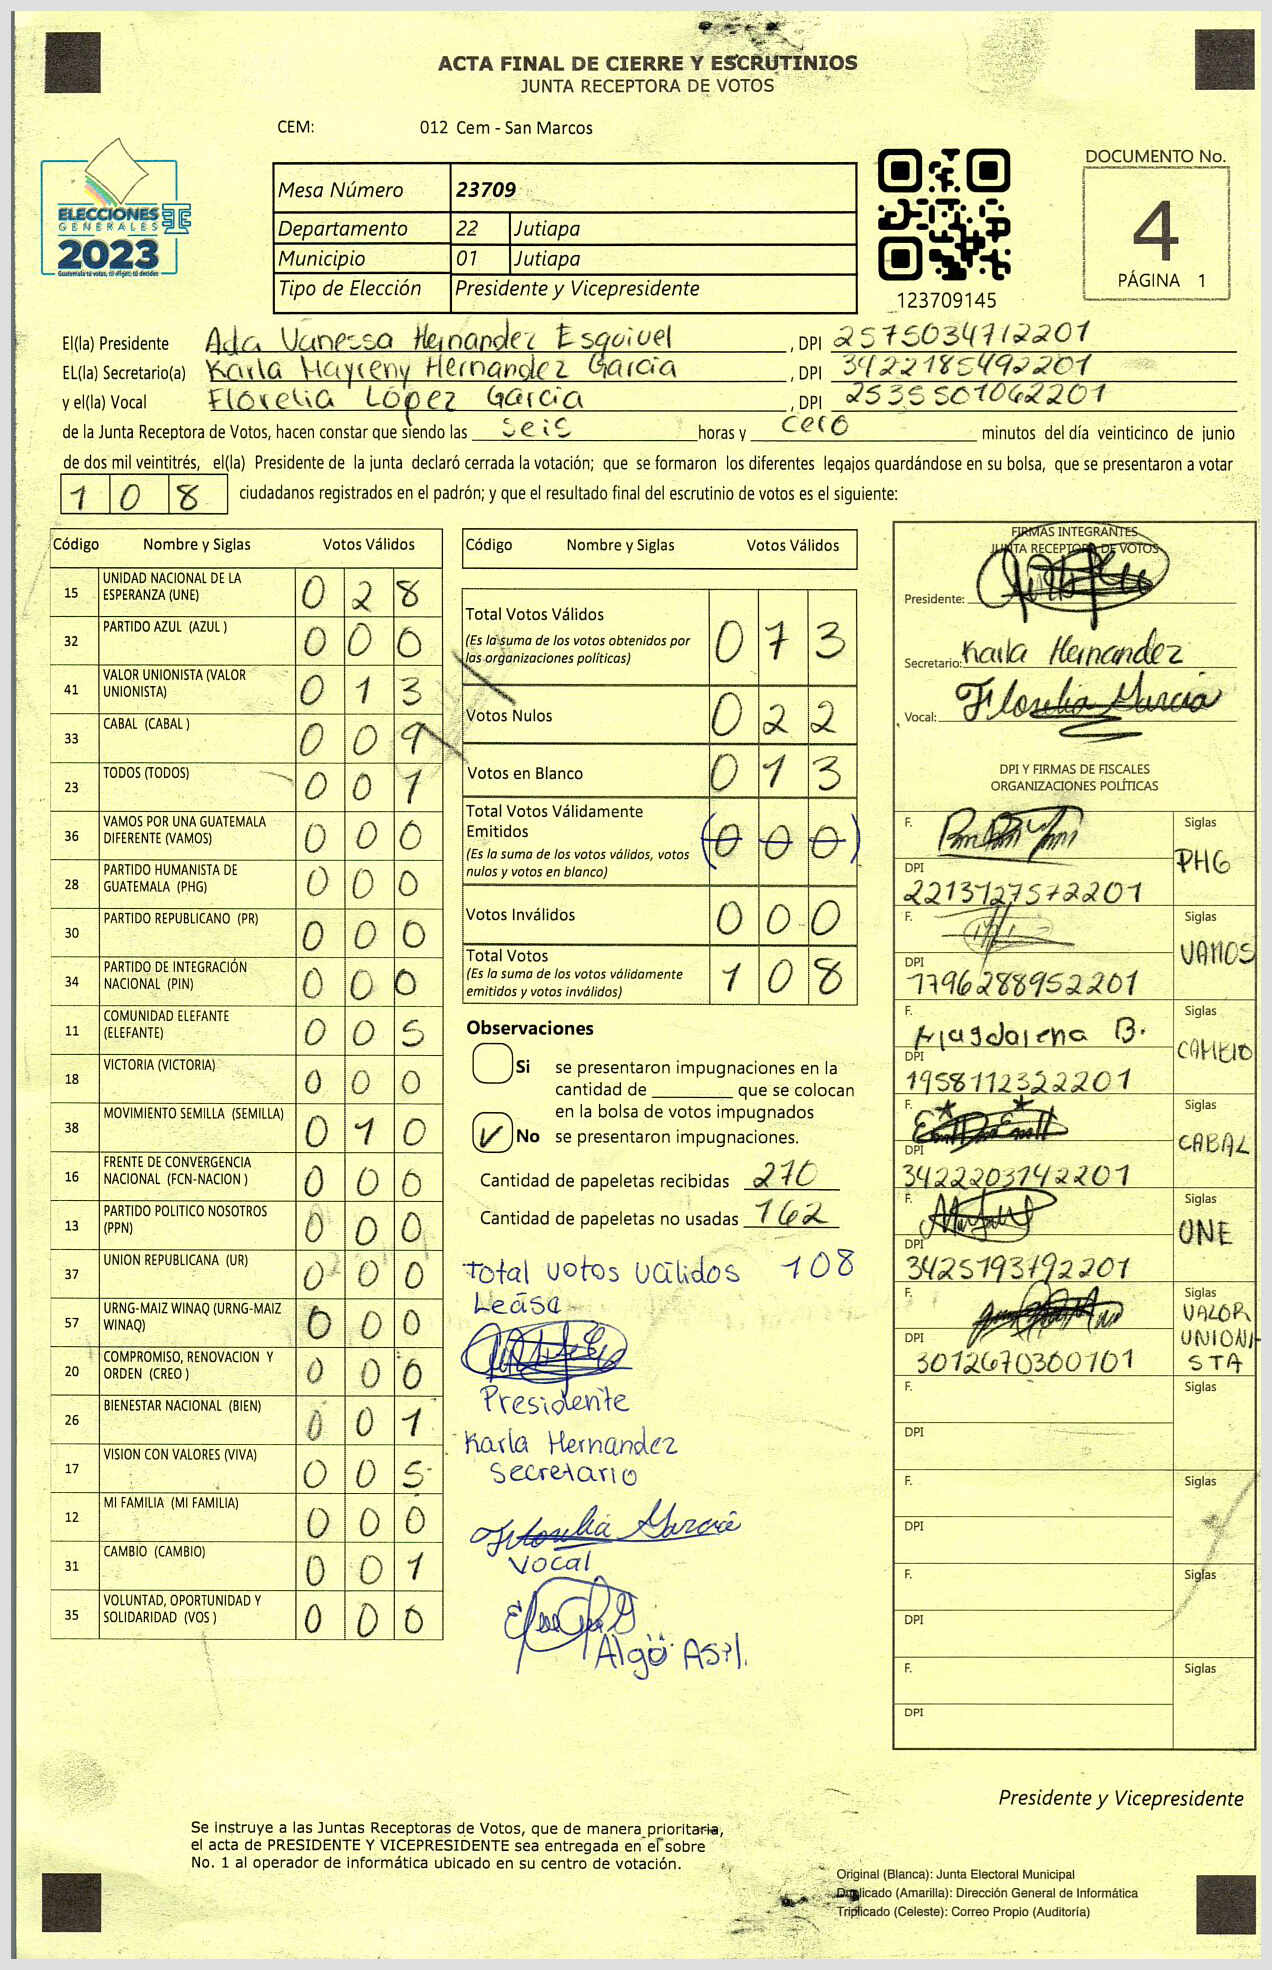 ACTA FINAL DE CIERRE Y ESCRUTINIOS
JUNTA RECEPTORA DE VOTOS
CEM: 012 Cem - San Marcos
ELECCIONES
GENERALES
2023
Guatemala tú votas, tú eliges, tú decides
Mesa Número 23709
Departamento 22 Jutiapa
Municipio 01 Jutiapa
Tipo de Elección Presidente y Vicepresidente
123709145
DOCUMENTO No.
4
PÁGINA 1
El(la) Presidente Ada Vanessa Hernandez Esquivel , DPI 2575034712201
EL(la) Secretario(a) Karla Mayreny Hernandez Garcia , DPI 3422185492201
y el(la) Vocal Florelia López Garcia , DPI 2535501062201
de la Junta Receptora de Votos, hacen constar que siendo las seis horas y cero minutos del día veinticinco de junio
de dos mil veintitrés, el(la) Presidente de la junta declaró cerrada la votación; que se formaron los diferentes legajos quardándose en su bolsa, que se presentaron a votar
1 0 8 ciudadanos registrados en el padrón; y que el resultado final del escrutinio de votos es el siguiente:
Código Nombre y Siglas Votos Válidos
15 UNIDAD NACIONAL DE LA ESPERANZA (UNE) 0 2 8
32 PARTIDO AZUL (AZUL ) 0 0 0
41 VALOR UNIONISTA (VALOR UNIONISTA) 0 1 3
33 CABAL (CABAL ) 0 0 9
23 TODOS (TODOS) 0 0 1
36 VAMOS POR UNA GUATEMALA DIFERENTE (VAMOS) 0 0 0
28 PARTIDO HUMANISTA DE GUATEMALA (PHG) 0 0 0
30 PARTIDO REPUBLICANO (PR) 0 0 0
34 PARTIDO DE INTEGRACIÓN NACIONAL (PIN) 0 0 0
11 COMUNIDAD ELEFANTE (ELEFANTE) 0 0 5
18 VICTORIA (VICTORIA) 0 0 0
38 MOVIMIENTO SEMILLA (SEMILLA) 0 1 0
16 FRENTE DE CONVERGENCIA NACIONAL (FCN-NACION ) 0 0 0
13 PARTIDO POLITICO NOSOTROS (PPN) 0 0 0
37 UNION REPUBLICANA (UR) 0 0 0
57 URNG-MAIZ WINAQ (URNG-MAIZ WINAQ) 0 0 0
20 COMPROMISO, RENOVACION Y ORDEN (CREO ) 0 0 0
26 BIENESTAR NACIONAL (BIEN) 0 0 1
17 VISION CON VALORES (VIVA) 0 0 5
12 MI FAMILIA (MI FAMILIA) 0 0 0
31 CAMBIO (CAMBIO) 0 0 1
35 VOLUNTAD, OPORTUNIDAD Y SOLIDARIDAD (VOS ) 0 0 0
Código Nombre y Siglas Votos Válidos
Total Votos Válidos 0 7 3
(Es la suma de los votos obtenidos por
las organizaciones políticas)
Votos Nulos 0 2 2
Votos en Blanco 0 1 3
Total Votos Válidamente
Emitidos (0 0 0)
(Es la suma de los votos válidos, votos
nulos y votos en blanco)
Votos Inválidos 0 0 0
Total Votos 1 0 8
(Es la suma de los votos válidamente
emitidos y votos inválidos)
Observaciones
Si se presentaron impugnaciones en la
cantidad de ________ que se colocan
en la bolsa de votos impugnados
No se presentaron impugnaciones.
Cantidad de papeletas recibidas 270
Cantidad de papeletas no usadas 162
Total votos válidos 108
Leása
Presidente
Karla Hernandez
Secretario
Florelia Garcia
Vocal
FIRMAS INTEGRANTES
JUNTA RECEPTORA DE VOTOS
Presidente:
Secretario: Karla Hernandez
Vocal: Florelia Garcia
DPI Y FIRMAS DE FISCALES
ORGANIZACIONES POLÍTICAS
F. Siglas
PHG
DPI
2213127572201
F. Siglas
VAMOS
DPI
1796288952201
F. Magdalena B. Siglas
CAMBIO
DPI
1958112322201
F. Siglas
CABAL
DPI
3422203142201
F. Siglas
UNE
DPI
3425193792201
F. Siglas
VALOR
UNIONI-
STA
DPI
3012670300101
F. Siglas
DPI
F. Siglas
DPI
F. Siglas
DPI
F. Siglas
DPI
Presidente y Vicepresidente
Se instruye a las Juntas Receptoras de Votos, que de manera prioritaria,
el acta de PRESIDENTE Y VICEPRESIDENTE sea entregada en el sobre
No. 1 al operador de informática ubicado en su centro de votación.
Original (Blanca): Junta Electoral Municipal
Duplicado (Amarilla): Dirección General de Informática
Triplicado (Celeste): Correo Propio (Auditoría)